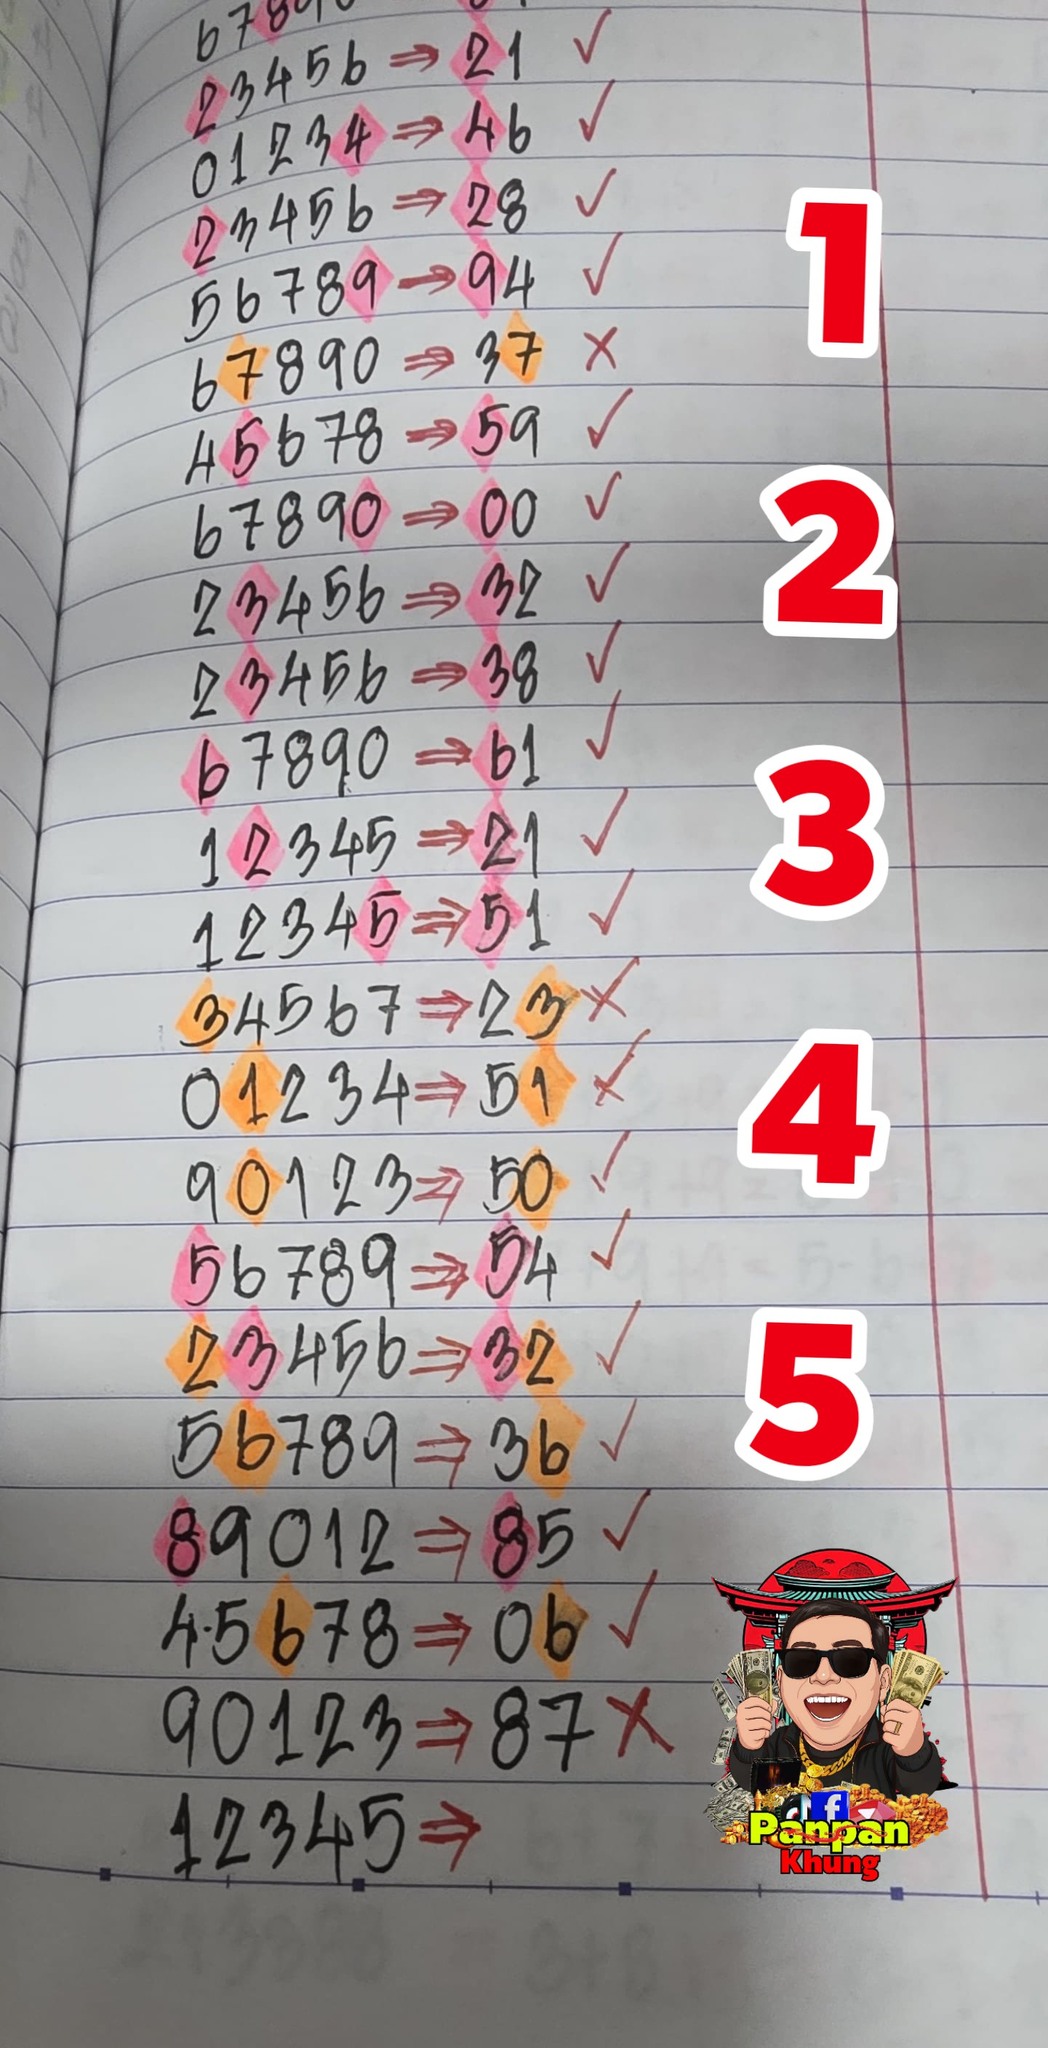 67890
23456 ⇒ 21 ✓
01234 ⇒ 46 ✓
23456 ⇒ 28 ✓
56789 → 94 ✓
67890 ⇒ 37 ✗
45678 ⇒ 59 ✓
67890 ⇒ 00 ✓
23456 ⇒ 32 ✓
23456 ⇒ 38 ✓
67890 ⇒ 61 ✓
12345 ⇒ 21 ✓
12345 ⇒ 51 ✓
34567 ⇒ 23 ✗
01234 ⇒ 51 ✗
90123 ⇒ 50 ✓
56789 ⇒ 54 ✓
23456 ⇒ 32 ✓
56789 ⇒ 36 ✓
89012 ⇒ 85 ✓
45678 ⇒ 06 ✓
90123 ⇒ 87 ✗
12345 ⇒
1
2
3
4
5
Panpan
Khung